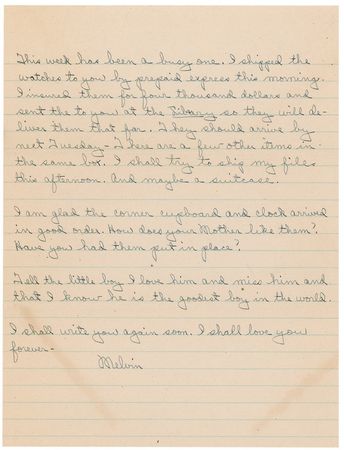 This week has been a busy one. I shipped the
watches to you by prepaid express this morning.
I insured them for four thousand dollars and
sent the to you at the Library so they will de-
liver them that far. They should arrive by
next Tuesday - There are a few other items in
the same box. I shall try to ship my files
this afternoon. And maybe a suitcase.
I am glad the corner cupboard and clock arrived
in good order. How does your Mother like them?
Have you had them put in place?
Tell the little boy I love him and miss him and
that I know he is the goodest boy in the world.
I shall write you again soon. I shall love you
forever -
Melvin